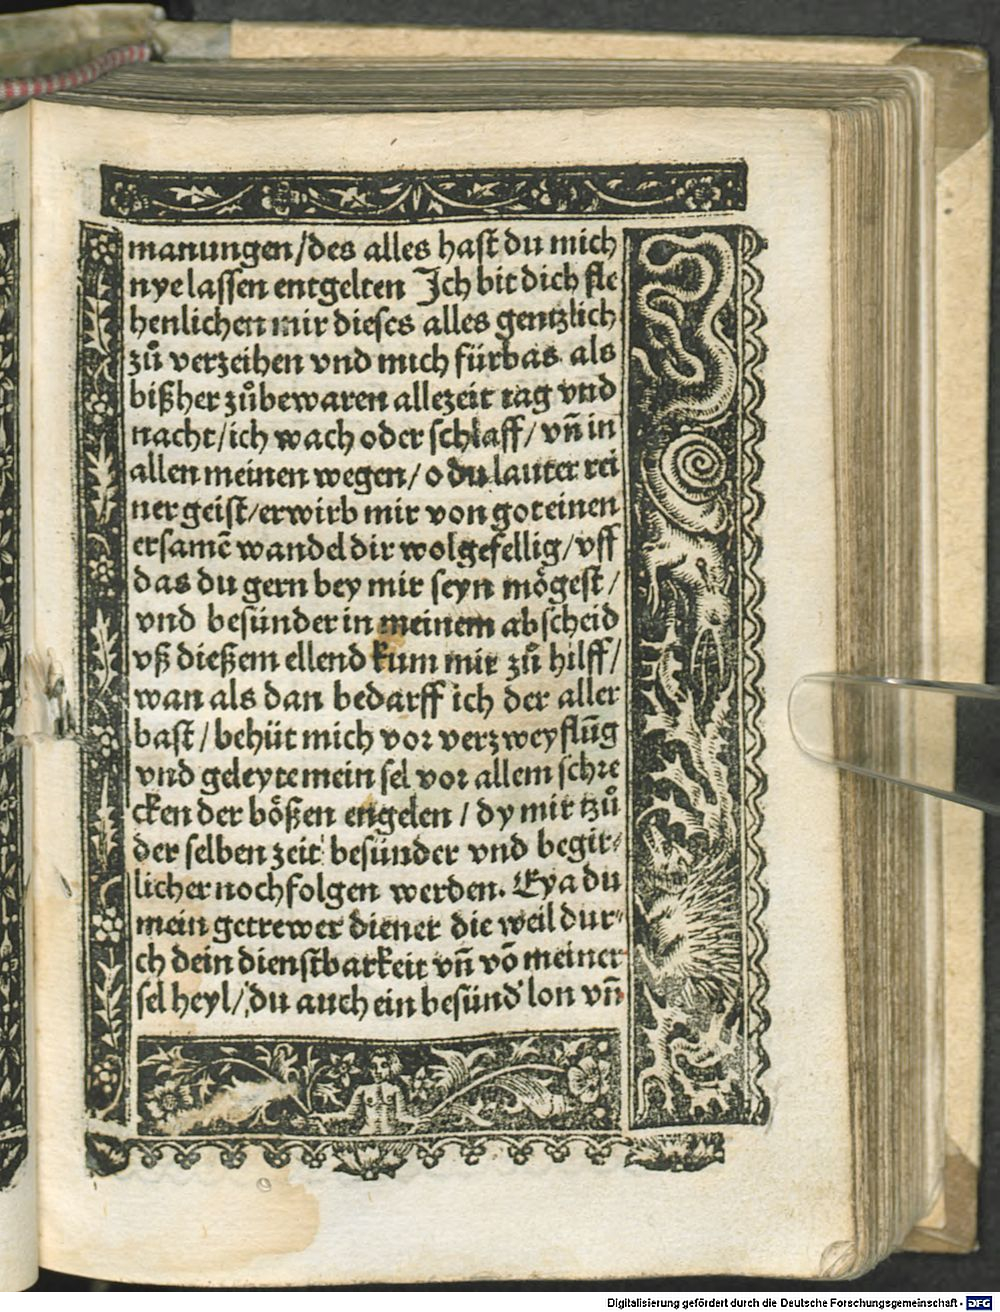 manungen/des alles hast du mich
nye lassen entgelten Ich bit dich fle
henlichen mir dieses alles gentzlich
zuͦ verzeihen vnd mich fürbas als
bißher zuͦbewaren allezeit tag vnd
nacht/ich wach oder schlaff/ vn̄ in
allen meinen wegen/ o du lauter rei
ner geist/erwirb mir von got einen
ersamē wandel dir wolgefellig/vff
das du gern bey mir seyn mögest/
vnd besünder in meinem abscheid
vß dießem ellend kum mir zuͦ hilff/
wan als dan bedarff ich der aller
bast/behüt mich vor verzweyflūg
vnd geleyte mein sel vor allem schre
cken der bößen engelen/dy mir tzuͦ
der selben zeit besünder vnd begir⸗
licher nochfolgen werden. Eya du
mein getrewer diener die weil dur⸗
ch dein dienstbarkeit vn̄ vō meiner
sel heyl/du auch ein besünd' lon vn̄
Digitalisierung gefördert durch die Deutsche Forschungsgemeinschaft - DFG